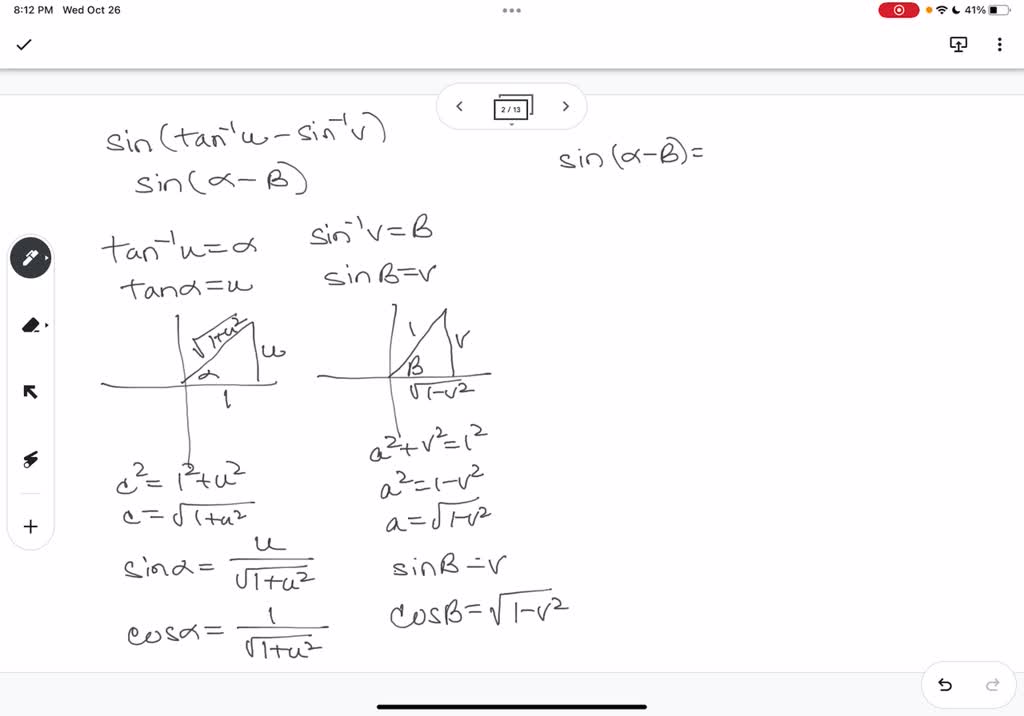 8:12 PM Wed Oct 26
41%
2 / 13
sin(tan⁻¹u − sin⁻¹v)
sin(α − B)
sin(α − B) =
tan⁻¹u = α
tanα = u
sin⁻¹v = B
sinB = v
√1+u²
u
α
1
1
v
B
√1−v²
c² = 1² + u²
c = √1+u²
sinα = u/√1+u²
cosα = 1/√1+u²
a² + v² = 1²
a² = 1 − v²
a = √1−v²
sinB = v
cosB = √1−v²